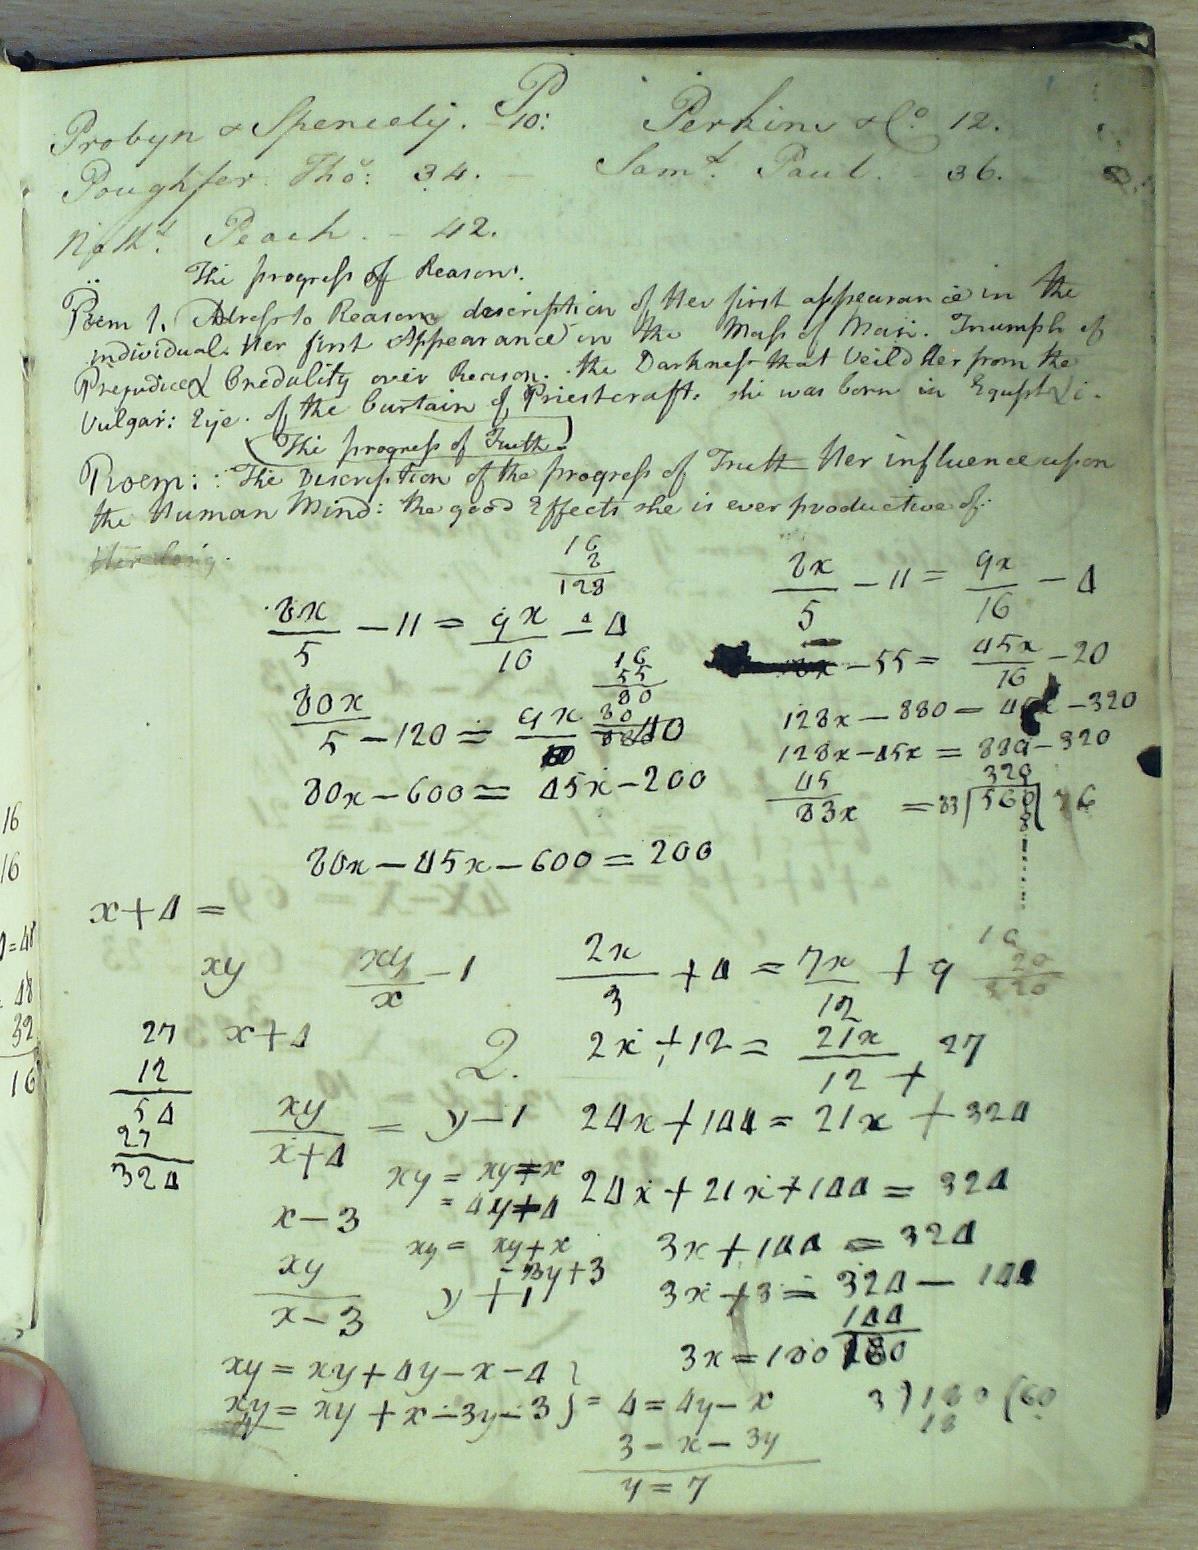 P
Probyn & Spencely. 10: Perkins & Co. 12.
Tho: 34. — Saml. Paul. - 36.
Peach. - 42.
The progress of Reason.
Poem 1. Adress to Reason description of Her first appearance in the
individual. Her first Appearance in the Mass of Man. Triumph of
Prejudice & Credulity over Reason. the Darkness that Veild Her from the
Vulgar: Eye. of the Curtain of Priestcraft. she was born in Egypt &c.
The progress of Truth.
Poem: : The Description of the progress of Truth Her influence upon
the Human Mind: the good Effects she is ever productive of:
16
8
128
8x/5 - 11 = 9x/16 - 4
8x/5 - 11 = 9x/10 - 4
16
55
80
80
880
- 55 = 45x/16 - 20
80x/5 - 120 = 9x/10 - 40
128x - 880 = 45x - 320
128x - 45x = 880 - 320
80x - 600 = 45x - 200
45 320
83x = 83)560( 6
80x - 45x - 600 = 200
x + 4 =
xy xy/x - 1 2x/3 + 4 = 7x/12 + 9
16
20
320
27 x + 4 2. 2x + 12 = 21x/12 + 27
12
54
27
324
xy/x+4 = y - 1 24x + 144 = 21x + 324
xy = xy + x
= 4y + 4 24x + 21x + 144 = 324
x - 3
xy = xy + x
- 3y + 3 3x + 144 = 324
xy/x-3 y + 1 3x + 3 = 324 - 144
144
3x = 180 180
xy = xy + 4y - x - 4
xy = xy + x - 3y - 3 } = 4 = 4y - x 3)180(60
18
3 - x - 3y
y = 7
16
16
= 48
48
32
16